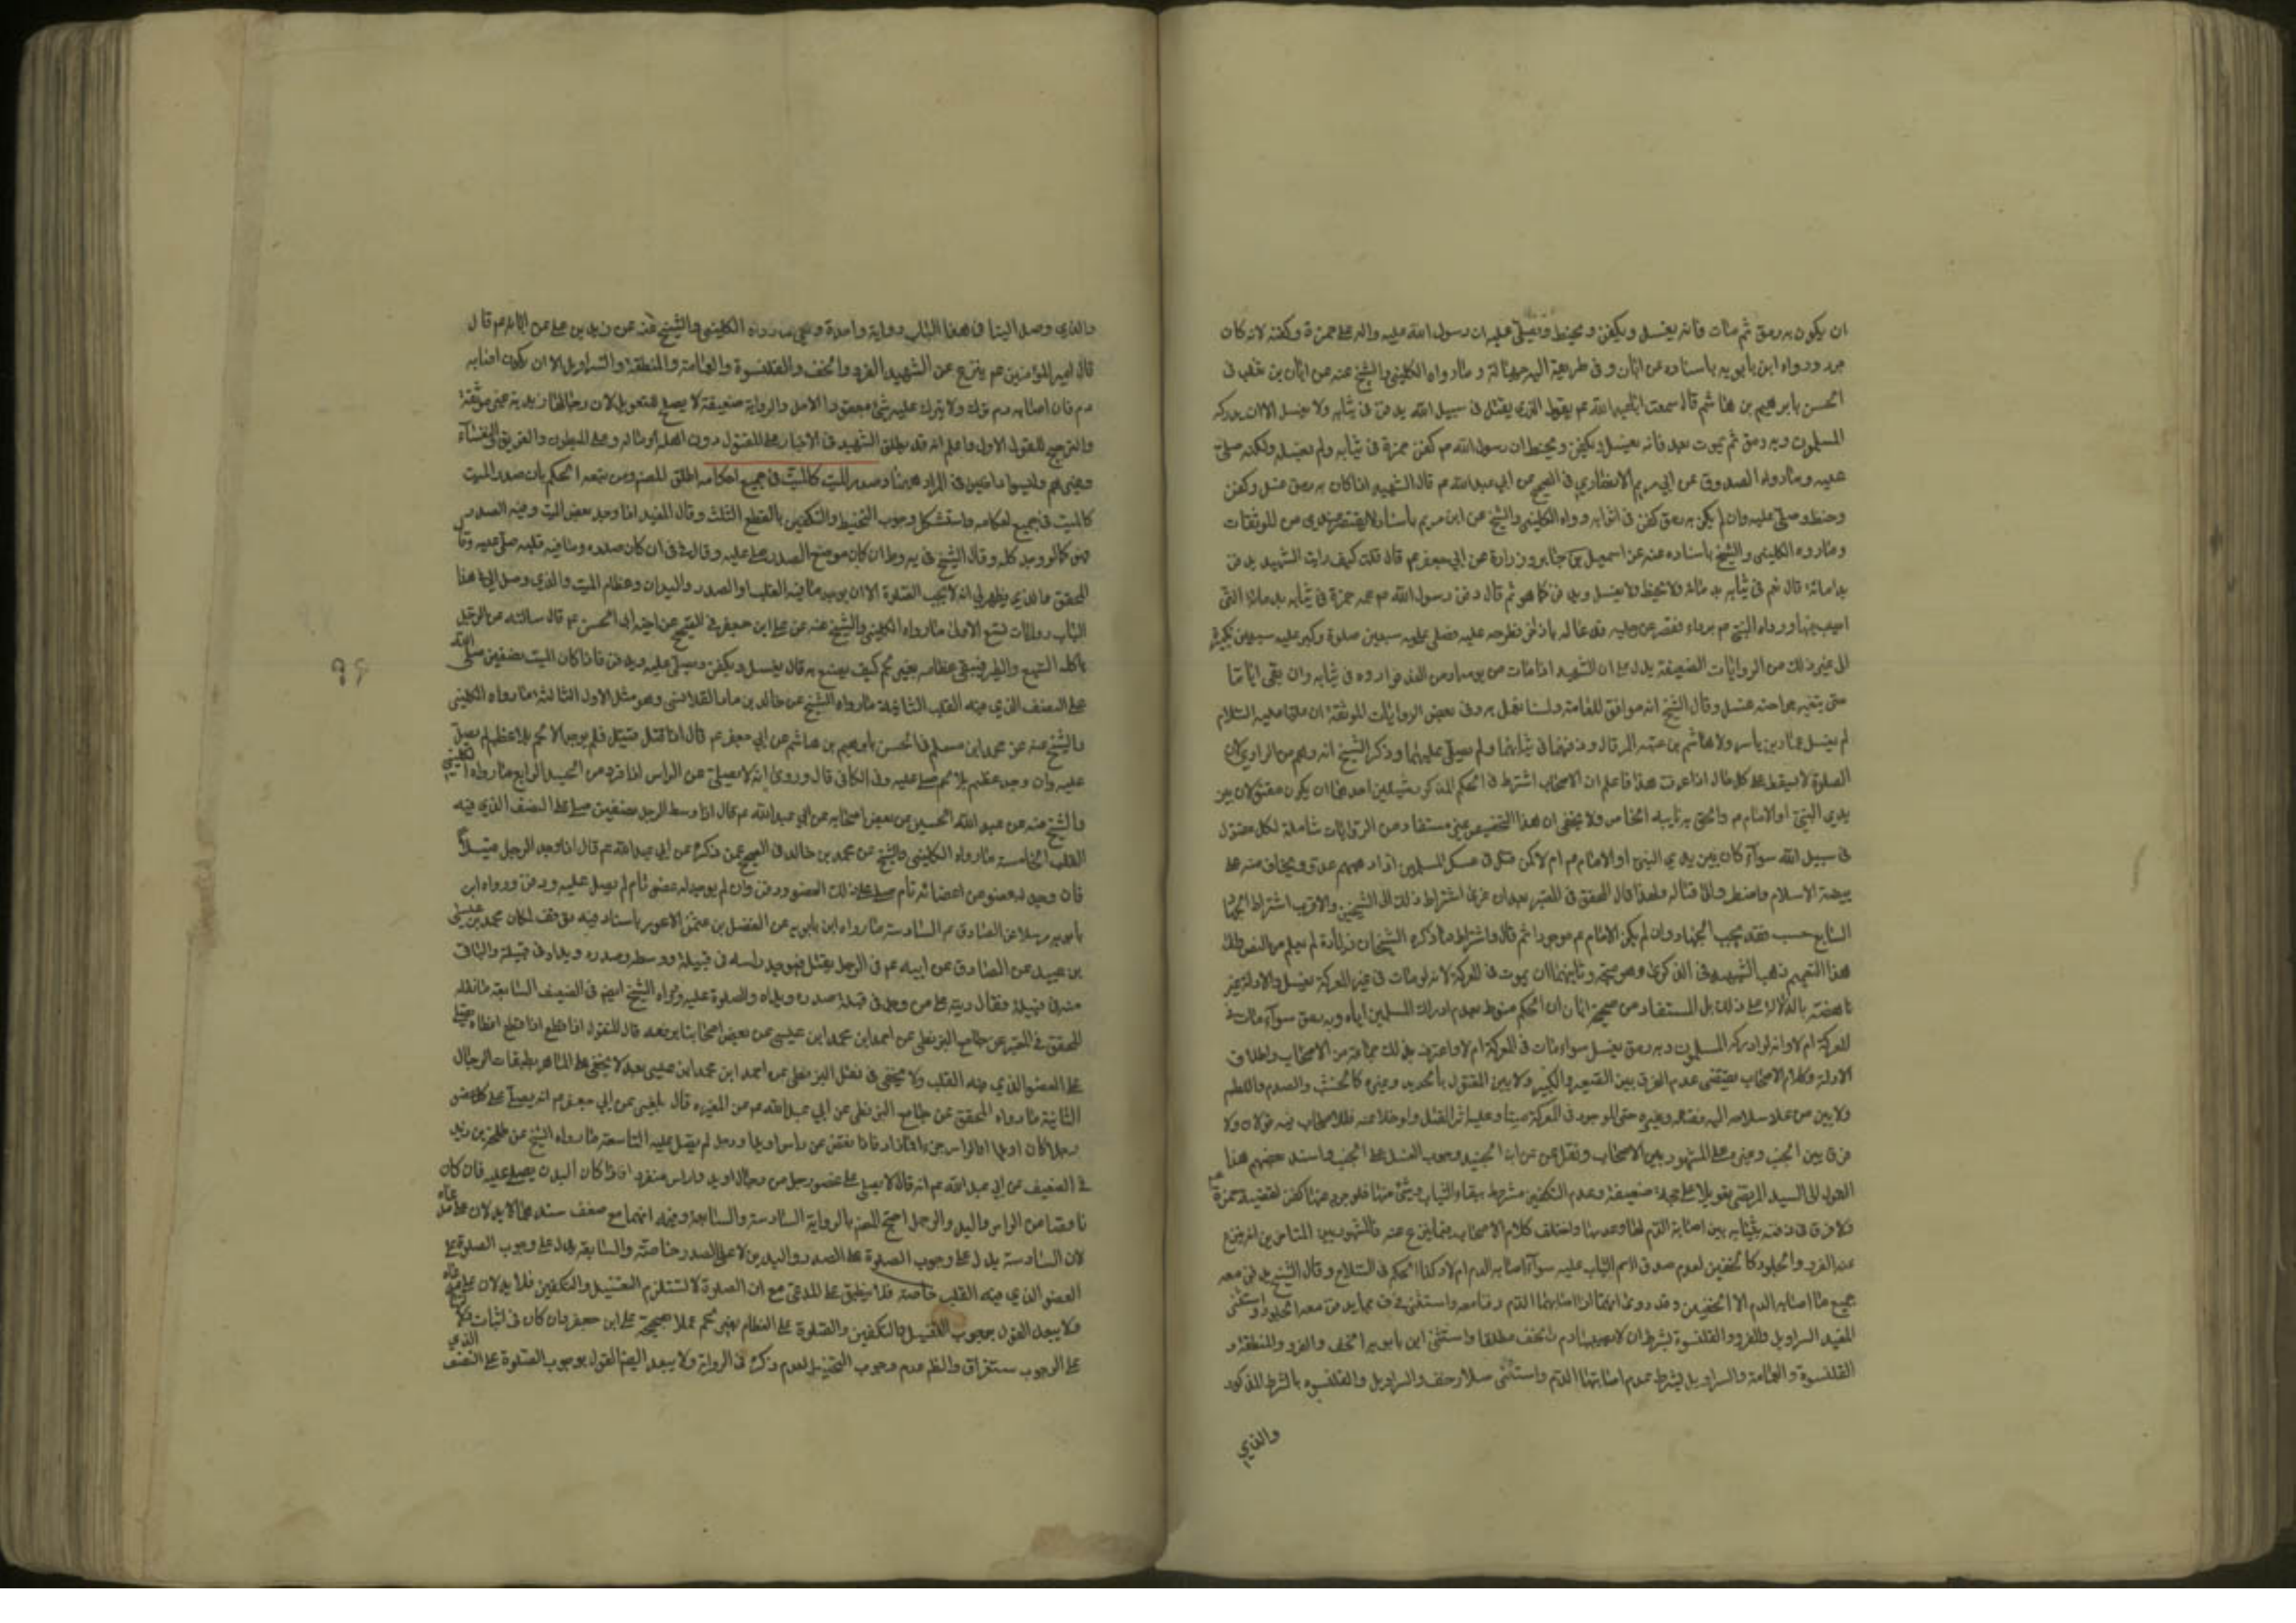 ان يكون به رمق ثم مات فانه يغسل ويكفن ويحنط ويصلى عليه ان رسول الله عليه واله صلى على حمزة وكفنه لانه كان
جرد ورواه ابن بابويه باسناده عن ابان وفى طريقه اليه جهالة و ما رواه الكلينى والشيخ عنه عن ابان بن تغلب فى
الحسن بابرهيم بن هاشم قال سمعت ابا عبد الله عم يقول الذى يقتل فى سبيل الله يدفن فى ثيابه ولا يغسل الا ان يدركه
المسلمون وبه رمق ثم يموت بعد فانه يغسل ويكفن ويحنط ان رسول الله ص كفن حمزة فى ثيابه ولم يغسله ولكنه صلى
عليه وما رواه الصدوق عن ابى مريم الانصارى فى الصحيح عن ابى عبد الله عم قال الشهيد اذا كان به رمق غسل وكفن
وحنط وصلى عليه وان لم يكن به رمق كفن فى اثوابه ورواه الكلينى والشيخ عن ابى مريم باسناد من الموثقات
وما رواه الكلينى والشيخ باسناده عنه عن اسمعيل بن جابر وزرارة عن ابى جعفر عم قال قلت كيف رايت الشهيد يدفن
بدمائه قال نعم فى ثيابه بدمائه ولا يحنط ولا يغسل ويدفن كما هو ثم قال دفن رسول الله ص عمه حمزة فى ثيابه بدمائه التى
اصيب فيها ورداه النبى ص برداء فقصر عن رجليه فدعا له باذخر فطرحه عليه وصلى عليه سبعين صلوة وكبر عليه سبعين تكبيرة
الى غير ذلك من الروايات الضعيفة يدل على ان الشهيد اذا مات من يومه او من الغد فواروه فى ثيابه وان بقى اياما
حتى يتغير جراحته غسل وقال الشيخ انه موافق للعامة ولسنا نعمل به وفى بعض الروايات الموثقة ان عليا عليه السلام
لم يغسل عمار بن ياسر ولا هاشم بن عتبه المرقال ودفنهما فى ثيابهما ولم يصل عليهما وذكر الشيخ انه وهم من الراوى لان
الصلوة لا يسقط على كل حال اذا عرفت هذا فاعلم ان الاصحاب اشترط فى الحكم المذكور شيئين احدهما ان يكون مقتولا بين
يدى النبى او الامام عم والحق به نايبه الخاص ولا يخفى ان هذا التخصيص غير مستفاد من الروايات شاملة لكل مقتول
فى سبيل الله سواء كان بين يدى النبى او الامام عم ام لا
بيضة الاسلام واضطر الى قتاله ولهذا قال المحقق فى المعتبر بعد ان عزى اشتراط ذلك الى الشيخين والاقرب اشتراط الجهاد
السايغ حسب فقد يجب الجهاد وان لم يكن الامام عم موجودا ثم قال واشتراط ما ذكره الشيخان زيادة لم يعلم من النص
هذا التعميم ذهب الشهيد فى الذكرى وهو متجه وثانيهما ان يموت فى المعركة لانه لو مات فى غير المعركة يغسل والادلة غير
ناهضة بالدلالة على ذلك بل المستفاد من صحيحة ابان ان الحكم منوط بعدم ادراك المسلمين اياه وبه رمق سواء مات فى
المعركة ام لا وانه لو ادركه المسلمون وبه رمق يغسل سواء مات فى المعركة ام لا واعترف بذلك جماعة من الاصحاب واطلاق
الادلة وكلام الاصحاب يقتضى عدم الفرق بين الصغير والكبير ولا بين المقتول بالحديد وغيره كالخشب والصدم واللطم
ولا بين من عاد سلاحه اليه فقتله وغيره حتى الموجود فى المعركة ميتا وعليه اثر القتل ولو خلا عنه فللاصحاب فيه قولان ولا
فرق بين الجنب وغيره على المشهور بين الاصحاب ونقل عن ابن الجنيد وجوب الغسل على الجنب واسند بعضهم هذا
القول الى السيد المرتضى تعويلا على حجة ضعيفة وعدم التكفين مشروط ببقاء الثياب او شئ منها فلو جرد عنها كفن لقضية حمزة
فلا فرق فى دفنه بثيابه بين اصابة الدم لها وعدمها واختلف كلام الاصحاب فيما ينزع عنه والمشهور بين المتاخرين انه ينزع
عنه الفرو والجلود كالخفين لعدم صدق اسم الثياب عليه سواء اصابه الدم ام لا وكذا الحكم فى السلاح وقال الشيخ يدفن معه
جميع ما اصابه الدم الا الخفين وقد روى انهما اذا اصابهما الدم دفنا معه واستثنى فى ف مما يدفن معه الجلود واستثنى
المفيد السراويل والفرو والقلنسوة بشرط ان لا يصيبها دم والخف مطلقا واستثنى ابن بابويه الخف والفرو والمنطقة و
القلنسوة والعمامة والسراويل بشرط عدم اصابتها الدم واستثنى سلار خف والسراويل والقلنسوه بالشرط المذكور
والذي
والذي وصل الينا فى هذا الباب رواية واحدة وهى ما رواه الكلينى والشيخ عنه عن زيد بن على عن ابائه عم قال
قال امير المؤمنين عم ينزع عن الشهيد الفرو والخف والقلنسوة والعمامة والمنطقة والسراويل الا ان يكون اصابه
دم فان اصابه دم ترك ولا يترك عليه شئ معقود الا حل والرواية ضعيفة لا يصلح للتعويل لان رجالها زيدية غير موثقة
والترجيح للقول الاول واعلم انه قد يطلق الشهيد فى الاخبار على المقتول دون اهله او ماله وعلى المبطون والغريق والنفساء
وغيرهم وليسوا داخلين فى المراد هنا وصدر الميت كالميت فى جميع احكامه اطلق المصنف ومن تبعه الحكم بان صدر الميت
كالميت فى جميع احكامه واستشكل وجوب التحنيط والتكفين بالقطع الثلث وقال المفيد اذا وجد بعض الميت وفيه الصدر
فهو كما لو وجد كله وقال الشيخ فى يه وط ان كان موضع الصدر صلى عليه وقال فى ف ان كان صدره وما فيه قلبه صلى عليه وقا
المحقق والذى يظهر لى انه لا يجب الصلوة الا ان يوجد ما فيه القلب او الصدر واليدان وعظام الميت والذى وصل الى فى هذا
الباب روايات تسع الاولى ما رواه الكلينى والشيخ عنه عن على ابن جعفر فى الصحيح عن اخيه ابى الحسن عم قال سالته عن الرجل
ياكله السبع والطير فيبقى عظامه بغير لحم كيف يصنع به قال يغسل ويكفن ويصلى عليه ويدفن فاذا كان الميت نصفين صلى
على النصف الذى فيه القلب الثانية ما رواه الشيخ عن خالد بن ماد القلانسى وهو مثل الاول الثالثة ما رواه الكلينى
والشيخ عنه عن محمد ابن مسلم فى الحسن بابرهيم بن هاشم عن ابى جعفر عم قال اذا قتل قتيل فلم يوجد الا لحم بلا عظم لم يصل
عليه وان وجد عظم بلا لحم صلى عليه وفى الكافى قال وروى انه لا يصلى على الراس اذا فرد من الجسد الرابع ما رواه الكلينى
والشيخ عنه عن عبد الله الحسين عن بعض اصحابه عن ابى عبد الله عم قال اذا وسط الرجل نصفين صلى على النصف الذى فيه
القلب الخامسة ما رواه الكلينى والشيخ عن محمد بن خالد فى الصحيح عمن ذكره عن ابى عبد الله عم قال اذا وجد الرجل قتيلا
فان وجد له عضو من اعضائه تام صلى على ذلك العضو ودفن وان لم يوجد له عضو تام لم يصل عليه ودفن ورواه ابن
بابويه مرسلا عن الصادق عم السادسة ما رواه ابن بابويه عن الفضل بن عثمن الاعور باسناد فيه توقف لمكان محمد بن عيسى
بن عبيد عن الصادق عن ابيه عم فى الرجل يقتل فيوجد راسه فى قبيلة ووسطه وصدره ويداه فى قبيلة والباقى
منه فى قبيلة فقال ديته على من وجد فى قبيلته صدره ويداه والصلوة عليه ورواه الشيخ ايضا فى الضعيف السابعة ما نقله
المحقق فى المعتبر عن جامع البزنطى عن احمد ابن محمد ابن عيسى عن بعض اصحابنا يرفعه قال المقتول اذا قطع اعضاءه يصلى
على العضو الذى فيه القلب ولا يخفى فى نقل البزنطى عن احمد ابن محمد ابن عيسى بعد لا يخفى على الماهر بطبقات الرجال
الثامنة ما رواه المحقق عن جامع البزنطى عن ابن المغيره قال بلغنى عن ابى جعفر عم انه يصلى على كل عضو
رجلا كان او يدا او الراس جزءا فما زاد فاذا نقص عن راس او يد او رجل لم يصل عليه التاسعة ما رواه الشيخ عن طلحة بن زيد
فى الضعيف عن ابى عبد الله عم انه قال لا يصلى على عضو رجل من رجل او يد او راس منفردا فاذا كان البدن يصلى عليه فان كان
ناقصا من الراس واليد والرجل احتج المصنف بالرواية السادسة والسابعة وفيه انهما مع ضعف سندهما لا يدلان على مدعاه
لان السادسة يدل على وجوب الصلوة على الصدر واليدين لا على الصدر خاصة والسابقة يدل على وجوب الصلوة على
العضو الذى فيه القلب خاصة فلا ينطبق على المدعى مع ان الصلوة لا تستلزم التغسيل والتكفين فلا يدلان على مدعاه
ولا يبعد القول بوجوب التغسيل والتكفين والصلوة على العظام بغير لحم عملا بصحيحة على ابن جعفر وان كان فى اثبات دلالة
على الوجوب ستعراق والظ عدم وجوب التحنيط لعدم ذكره فى الرواية ولا يبعد ايضا القول بوجوب الصلوة على النصف الذي